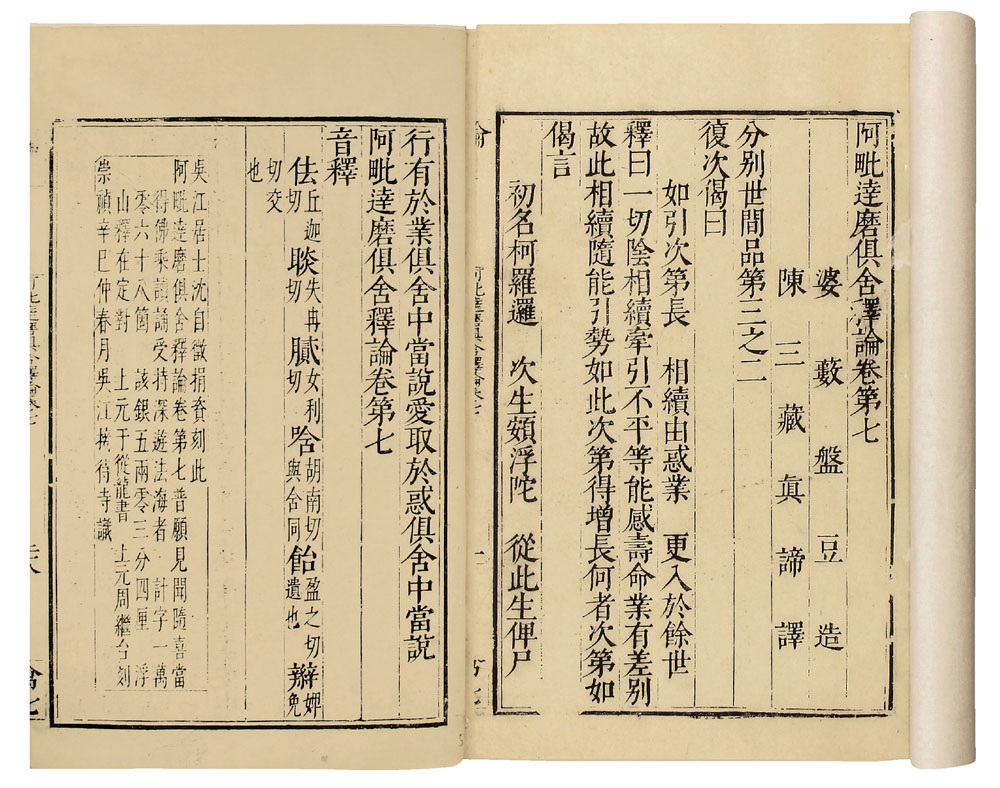 阿毗達磨俱舍釋論卷第七
婆藪盤豆造
陳三藏真諦譯
分别世間品第三之二
復次偈曰
如引次第長 相續由惑業 更入於餘世
釋曰一切陰相續牽引不平等能感壽命業有差别
故此相續隨能引勢如此次第得增長何者次第如
偈言
初名柯羅邏 次生頞浮陀 從此生俾尸
行有於業俱舍中當說愛取於惑俱舍中當說
阿毗達磨俱舍釋論卷第七
音釋
佉丘迦切 睒失冉切 膩女利切 唅胡南切與含同 飴盈之切遺也 辯婢免
切交
也
吳江居士沈自徵捐資刻此
阿毗達磨俱舍釋論卷第七普願見聞隨喜當
得佛乘讀誦受持深遊法海者 計字一萬
零六十八箇 該銀五兩零三分四厘 浮
山釋在定對 上元于從龍書 上元周繼台刻
崇禎辛巳仲春月吳江接待寺識